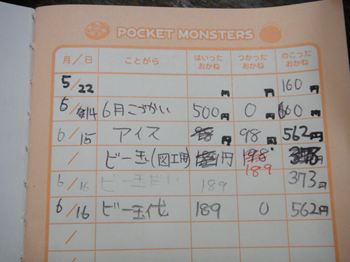 POCKET MONSTERS
月/日 ことがら はいったおかね つかったおかね のこったおかね
5/22 円 円 160円
6/14 6月こづかい 500円 0円 660円
6/15 アイス 円 98円 562円
/ ビー玉(図工用) 円 189
6/16 189 373円
6/16 ビー玉代 189 0 562円
/
/